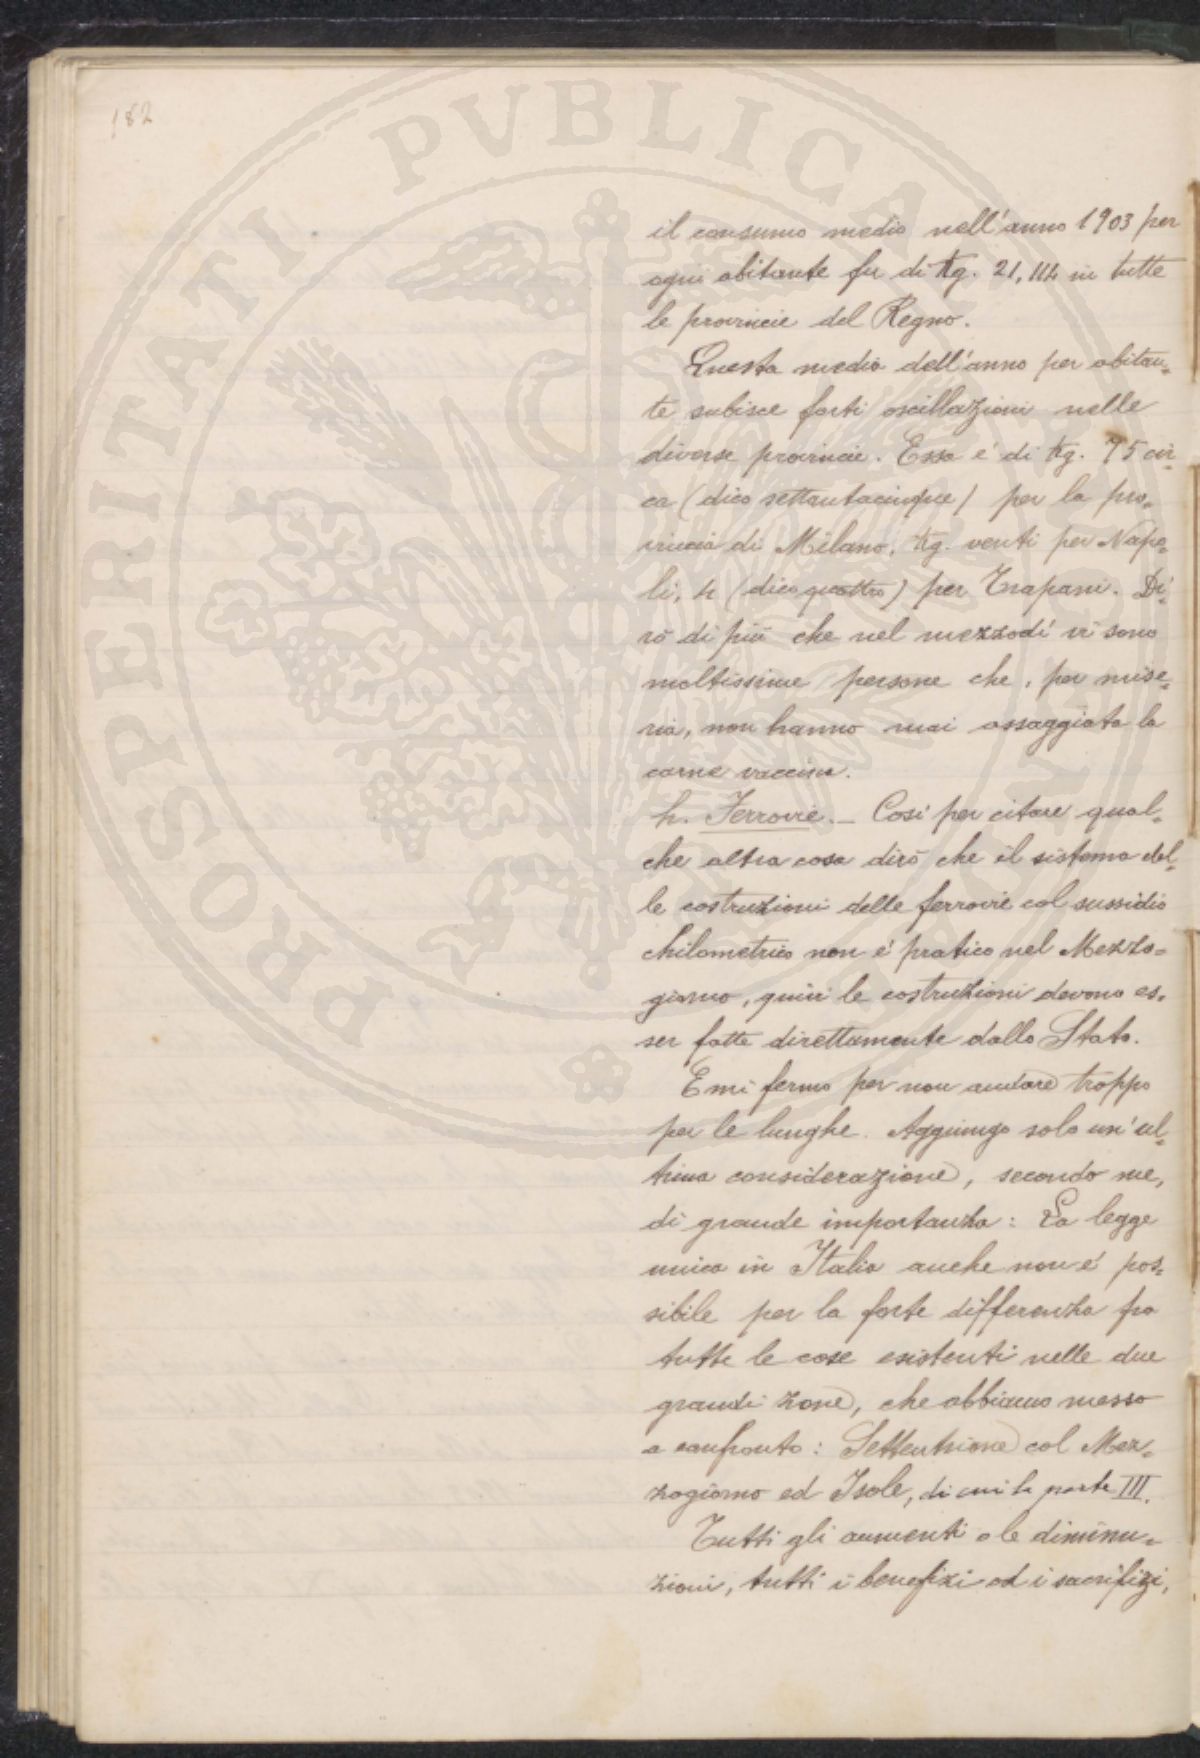 182
il consumo medio nell'anno 1903 per
ogni abitante fu di Kg. 21,114 in tutte
le provincie del Regno.
Questa media dell'anno per abitan=
te subisce forti oscillazioni nelle
diverse provincie. Essa é di Kg. 75 cir=
ca (dico settantacinque) per la pro=
vincia di Milano, Kg. venti per Napo=
li, 4 (dico quattro) per Trapani. Di=
rò di più che nel mezzodí vi sono
moltissime persone che, per mise=
ria, non hanno mai assaggiato la
carne vaccina.
h. Ferrovie. _ Cosí per citare qual=
che altra cosa dirò che il sistema del=
le costruzioni delle ferrovie col sussidio
chilometrico non é pratico nel Mezzo=
giorno, quivi le costruzioni devono es=
ser fatte direttamente dallo Stato.
E mi fermo per non andare troppo
per le lunghe. Aggiungo solo un'ul=
tima considerazione, secondo me,
di grande importanza: La legge
unica in Italia anche non é pos=
sibile per la forte differenza fra
tutte le cose esistenti nelle due
grandi zone, che abbiamo messo
a confronto: Settentrione col Mez=
zogiorno ed Isole, di cui la parte III.
Tutti gli aumenti o le diminu=
zioni, tutti i benefizi ed i sacrifizi,
PROSPERITATI PVBLICAE